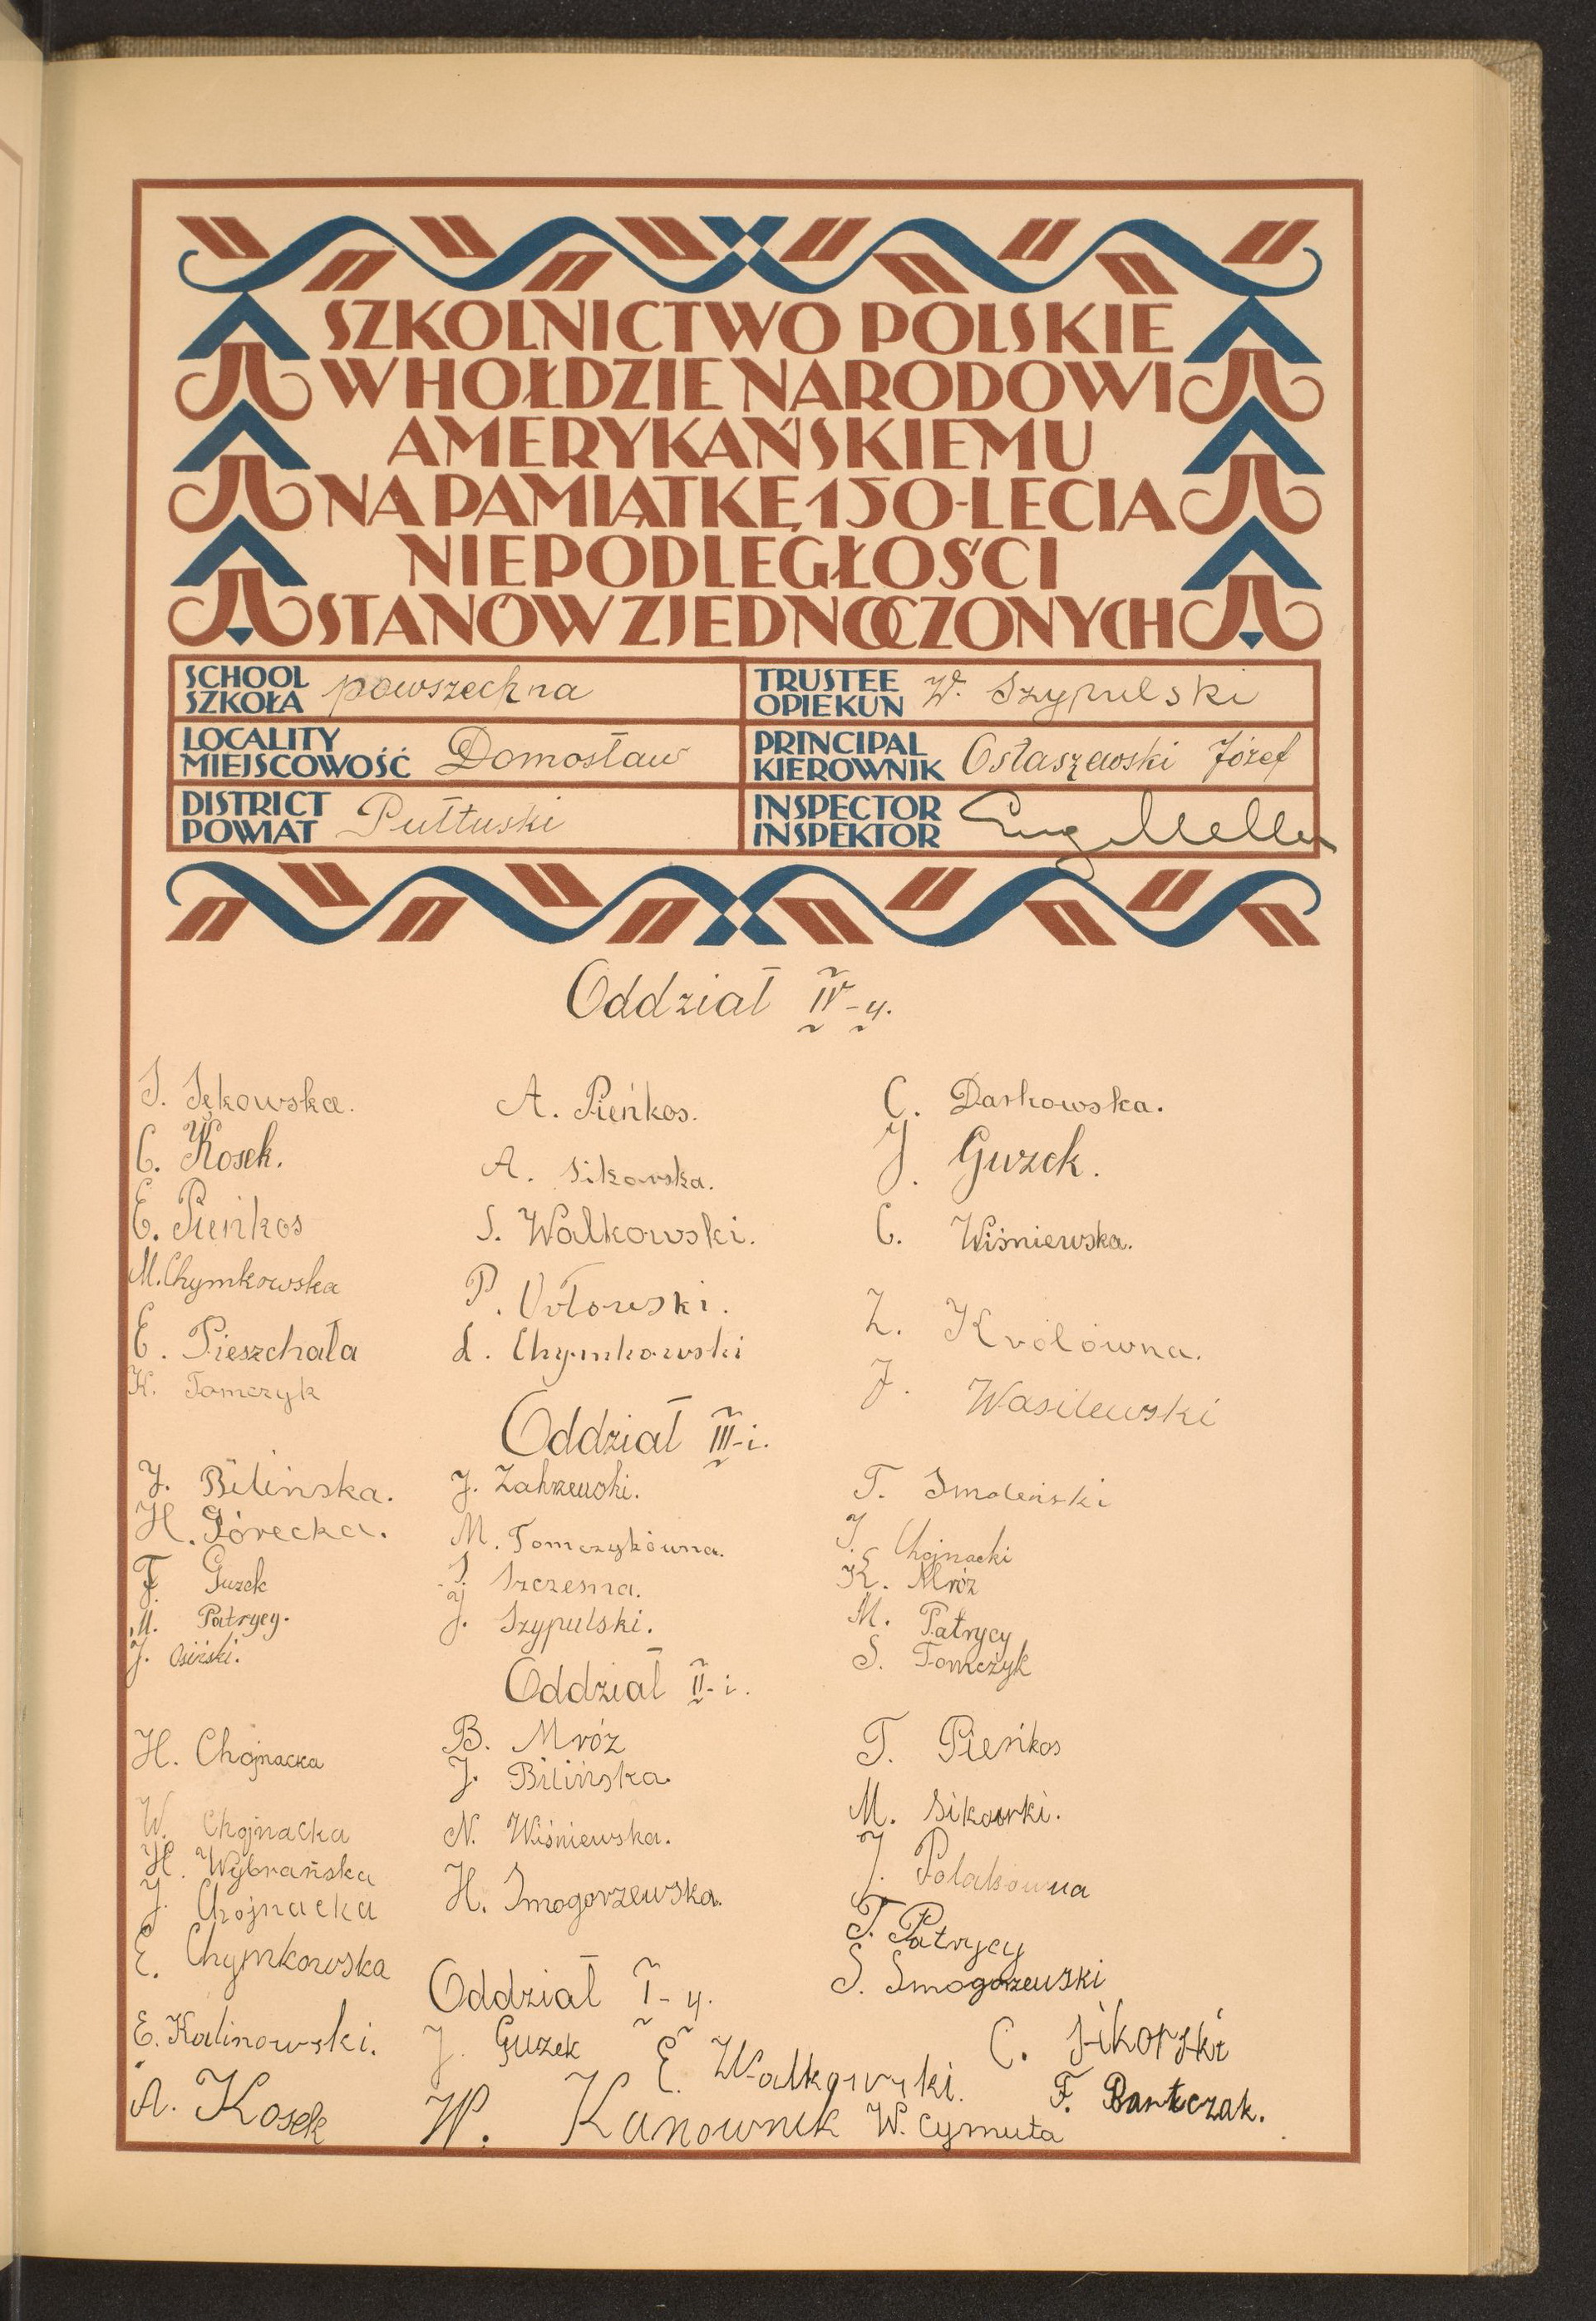 SZKOLNICTWO POLSKIE
W HOŁDZIE NARODOWI
AMERYKAŃSKIEMU
NA PAMIĄTKĘ 150-LECIA
NIEPODLEGŁOŚCI
STANÓW ZJEDNOCZONYCH
SCHOOL
SZKOŁA powszechna
TRUSTEE
OPIEKUN W. Szypulski
LOCALITY
MIEJSCOWOŚĆ Domosław
PRINCIPAL
KIEROWNIK Ostaszewski Józef
DISTRICT
POWIAT Pułtuski
INSPECTOR
INSPEKTOR
Oddział IV-y.
S. Sękowska.
C. Kosek.
E. Pieńkos
M. Chymkowska
E. Pieszchała
K. Tomczyk
A. Pieńkos.
A. Sikorska.
S. Walkowski.
P. Ołowski.
L. Chymkowski
C. Darkowska.
J. Guzek.
C. Wiśniewska.
Z. Królówna.
J. Wasilewski
Oddział III-i.
J. Bilińska.
H. Górecka.
F. Guzek
M. Patrycy.
J. Osiński.
J. Zakrzewski.
M. Tomczykówna.
S. Szczesna.
J. Szypulski.
T. Smoleński
J. Chojnacki
K. Mróz
M. Patrycy
S. Tomczyk
Oddział II-i.
H. Chojnacka
W. Chojnacka
H. Wybrańska
J. Chojnacka
E. Chymkowska
B. Mróz
J. Bilińska.
N. Wiśniewska.
H. Smogorzewska.
T. Pieńkos
M. Sikorki.
J. Polakowna
T. Patrycy
S. Smogorzewski
Oddział I-y.
E. Kalinowski.
J. Guzek
E. Walkowski.
C. Sikorski
A. Kosek
W. Kanownik
W. Cymuta
F. Bartczak.